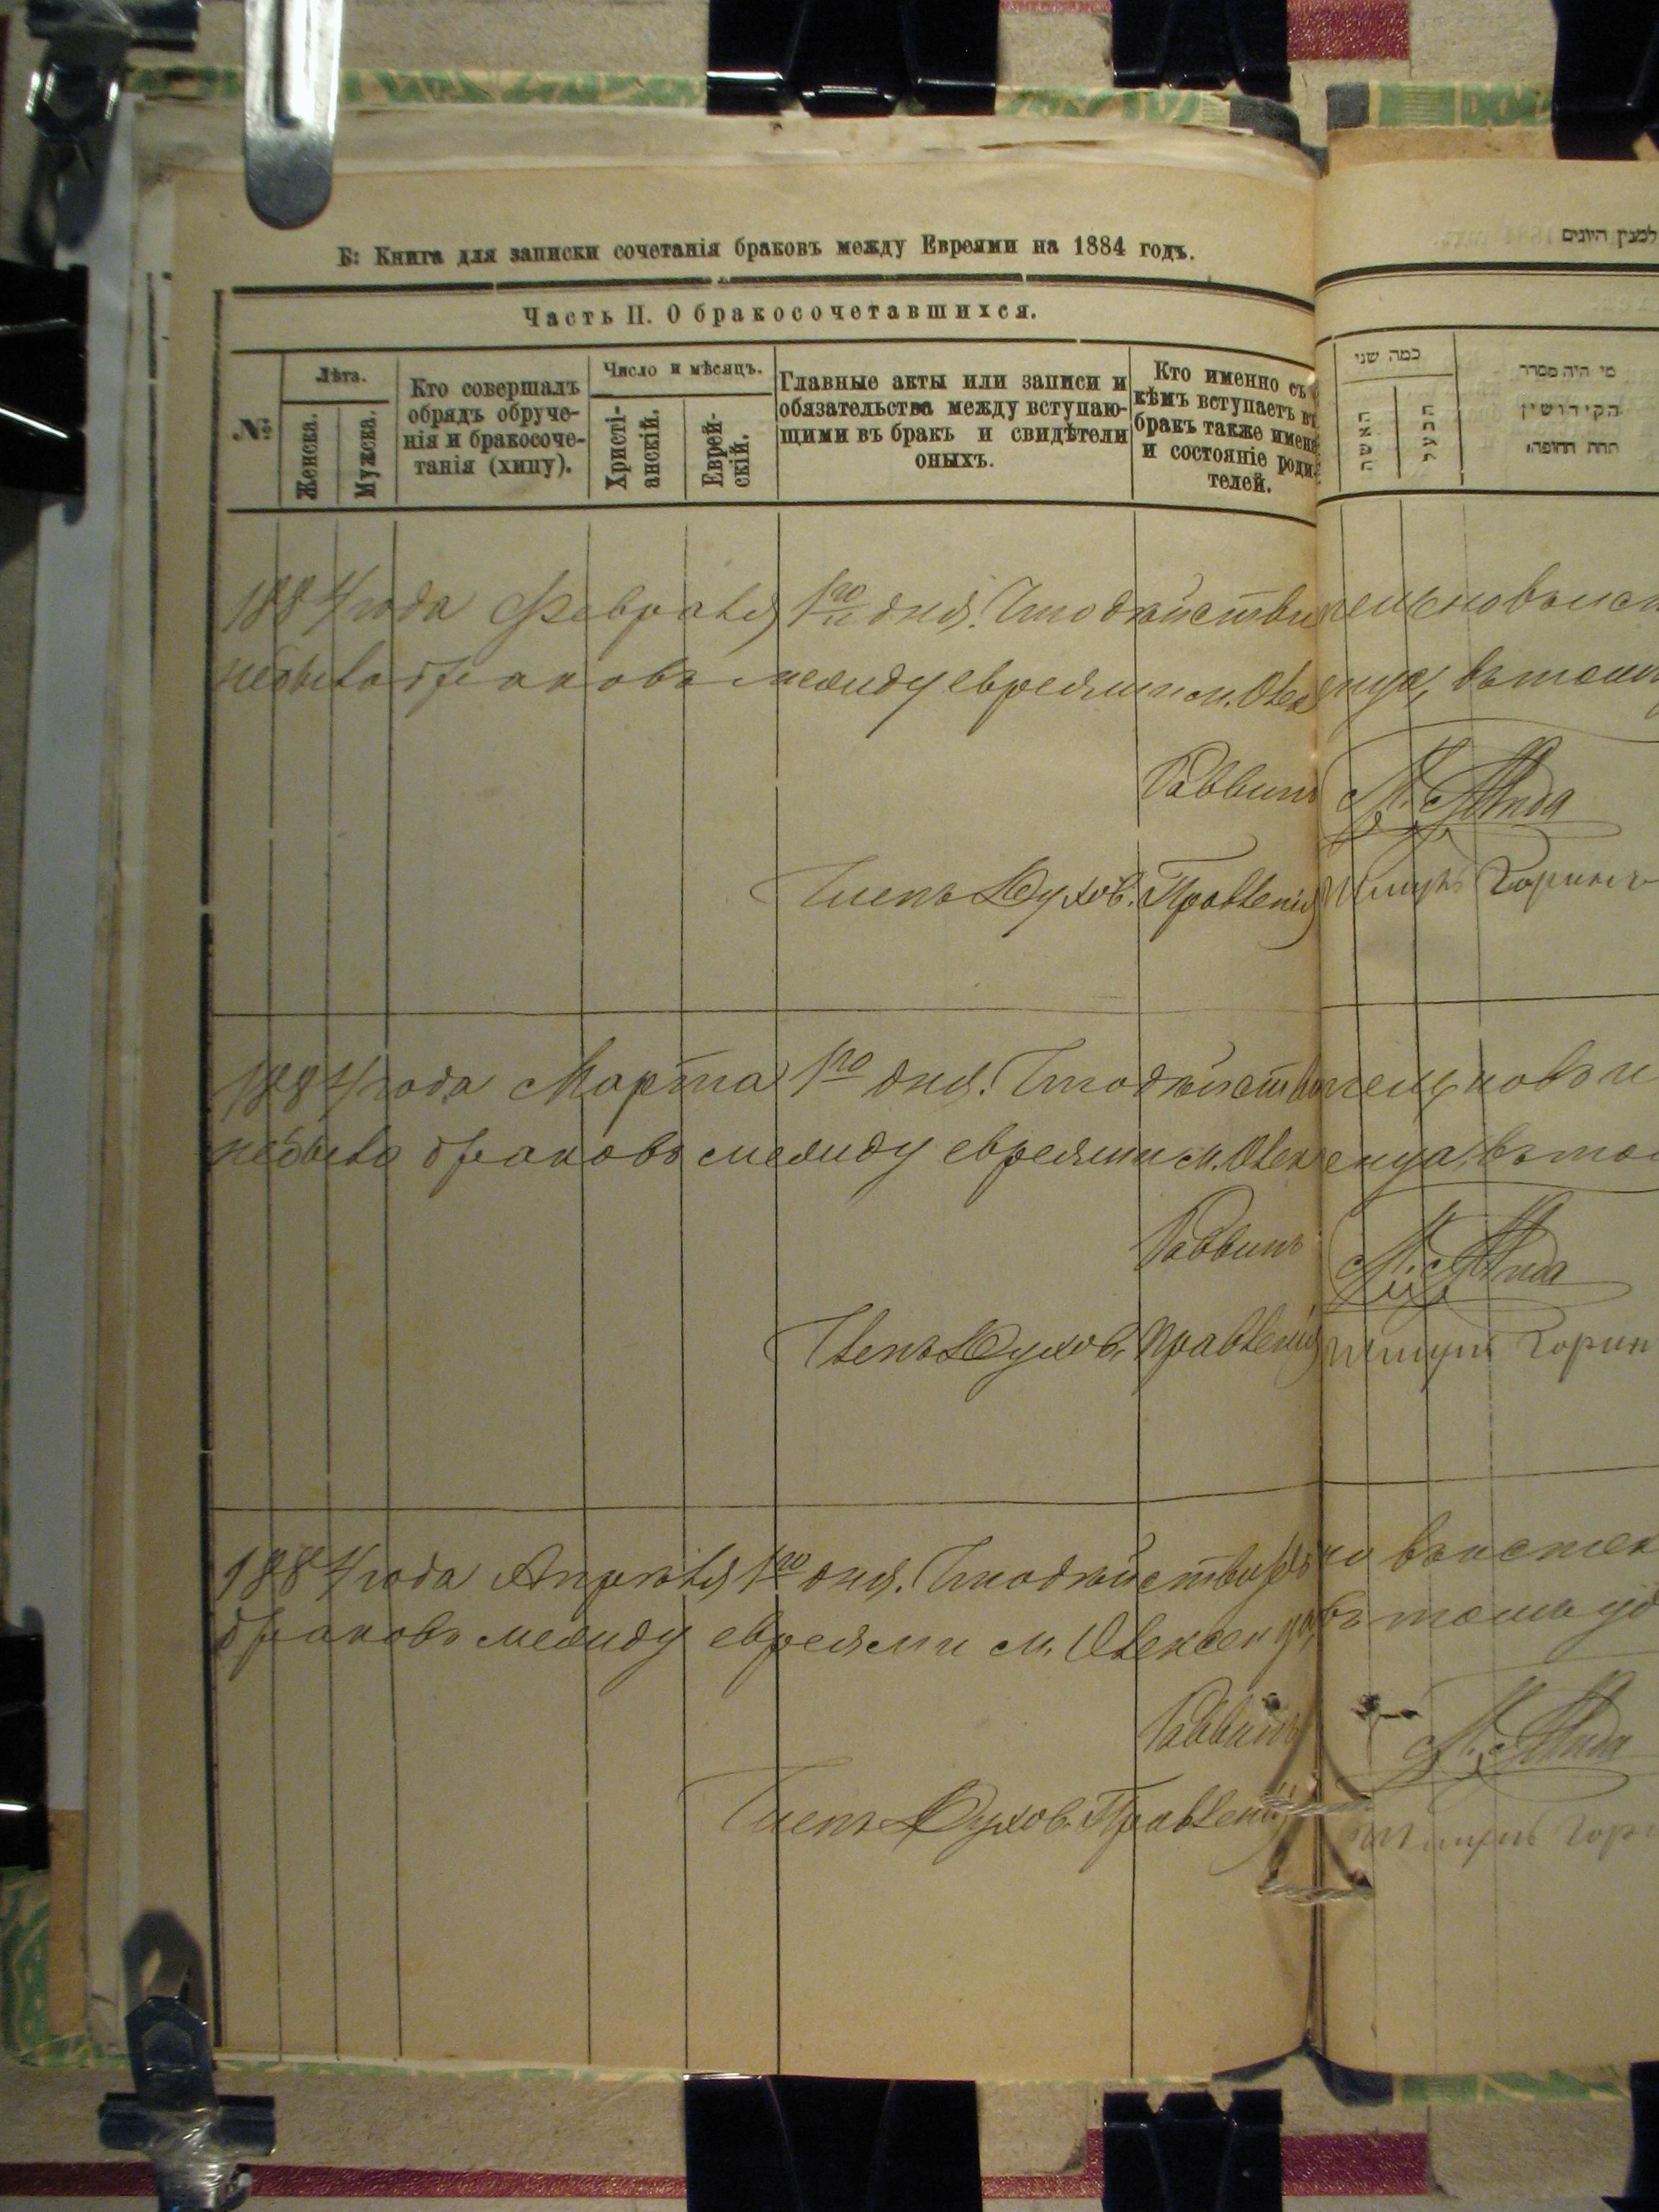 Б: Книга для записки сочетанія браковъ между Евреями на 1884 годъ.
Часть II. О бракосочетавшихся.
№
Лѣта.
Женска.
Мужска.
Кто совершалъ
обрядъ обруче-
нія и бракосоче-
танія (хипу).
Число и мѣсяцъ.
Христі-
анскій.
Еврей-
скій.
Главные акты или записи и
обязательства между вступаю-
щими въ бракъ и свидѣтели
оныхъ.
Кто именно съ
кѣмъ вступаетъ въ
бракъ также имена
и состояніе роди-
телей.
1884 года Февраля 1го дня. Что дѣйстви
небыло браковъ между евреями м.
Раввинъ
Членъ Духов. Правленія
1884 года Марта 1го дня. Что дѣйстви
небыло браковъ между евреями м.
Раввинъ
Членъ Духов. Правленія
1884 года Апрѣля 1го дня. Что дѣйстви
браковъ между евреями м. Олексенца, въ томъ
Раввинъ
Членъ Духов. Правленія
למנין היונים
כמה שני
האשה
הבעל
מי היה מסדר
הקידושין
תחת החופה